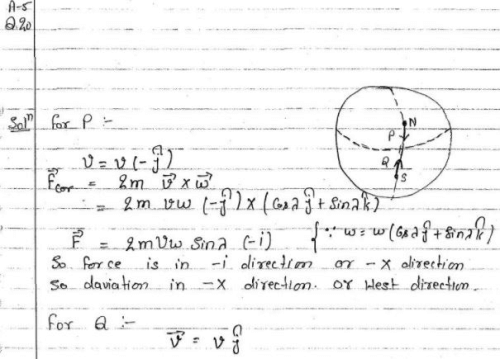 A-5
Q.20
Solⁿ for P :-
N
P
Q
S
v = v(-ĵ)
F⃗cor = 2m v⃗ × ω⃗
= 2m vω (-ĵ) × (Cosλ ĵ + Sinλ k̂)
F⃗ = 2mvω Sinλ (-i) {∵ ω = ω(Cosλ ĵ + Sinλ k̂)
So force is in -i direction or -x direction
So daviation in -x direction. or West direction.
for Q :-
v⃗ = v ĵ